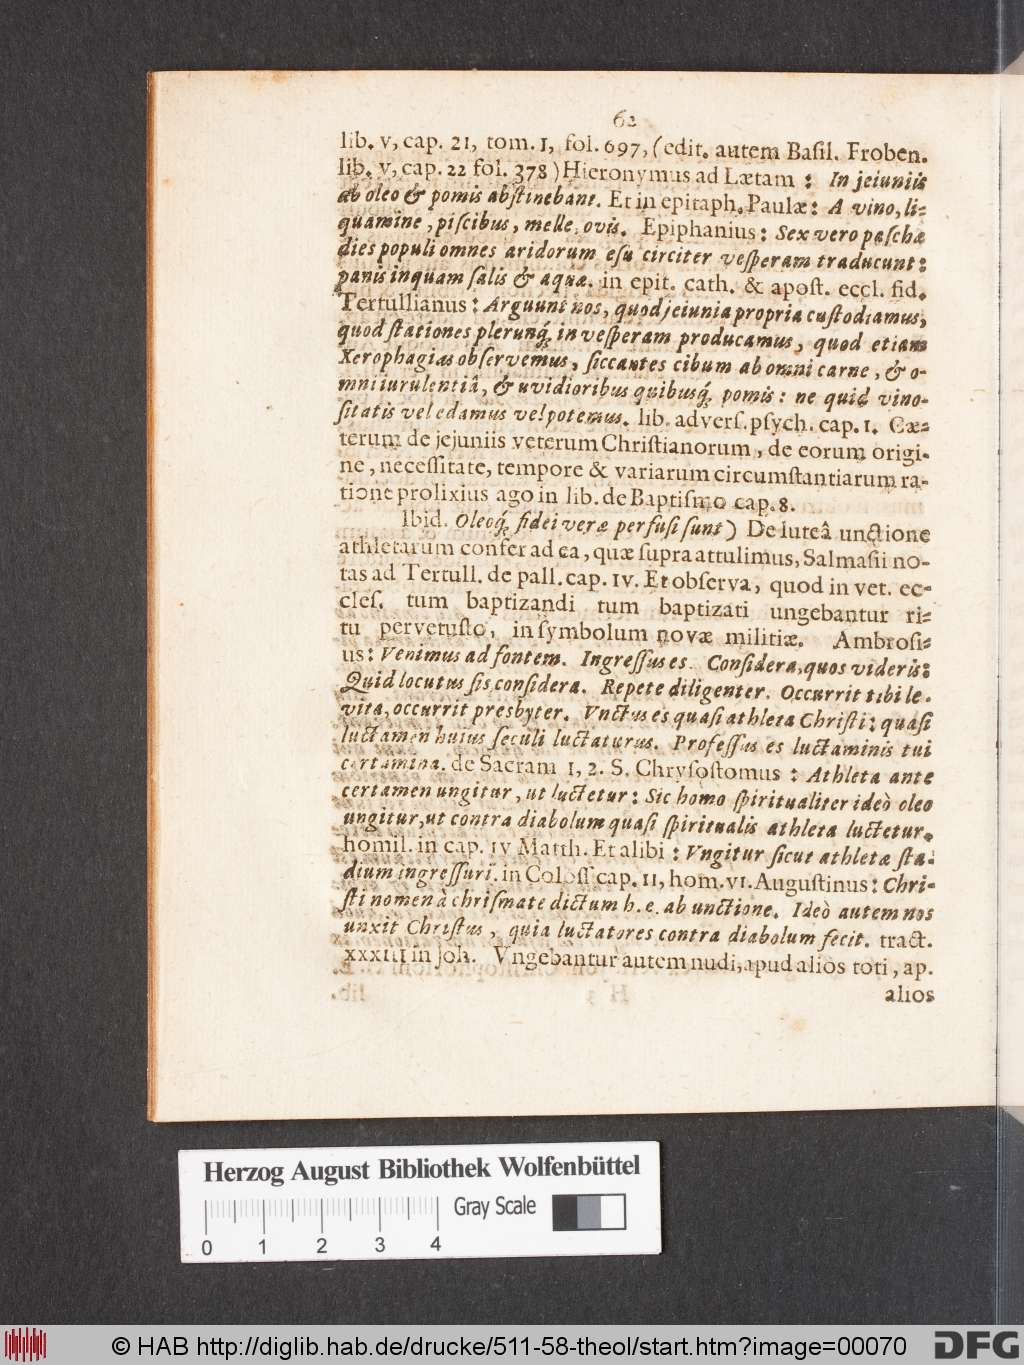 62
lib. v, cap. 21, tom. 1, fol. 697, (edit. autem Basil. Froben.
lib. v, cap. 22 fol. 378) Hieronymus ad Lætam : In jejuniis
ab oleo & pomis abſtinebant. Et in epitaph. Paulæ: A vino, li-
quamine, piſcibus, melle, ovis. Epiphanius: Sex vero paſchæ
dies populi omnes aridorum eſu circiter veſperam traducunt:
panis inquam ſalis & aquæ. in epit. cath. & apoſt. eccl. fid.
Tertullianus: Arguunt nos, quod jejunia propria cuſtodiamus,
quod ſtationes plerunq́; in veſperam producamus, quod etiam
Xerophagias obſervemus, ſiccantes cibum ab omni carne, & o-
mni iurulentiâ, & uvidioribus quibusq́; pomis: ne quid vino-
ſitatis vel edamus vel potemus. lib. adverſ. pſych. cap. 1. Cæ-
terum de jejuniis veterum Chriſtianorum, de eorum origi-
ne, neceſſitate, tempore & variarum circumſtantiarum ra-
tione prolixius ago in lib. de Baptiſmo cap. 8.
Ibid. Oleoq́; fidei veræ perfuſi ſunt) De luteâ unctione
athletarum confer ad ea, quæ ſupra attulimus, Salmaſii no-
tas ad Tertull. de pall. cap. IV. Et obſerva, quod in vet. ec-
cleſ. tum baptizandi tum baptizati ungebantur ri-
tu pervetuſto, in ſymbolum novæ militiæ. Ambroſi-
us: Venimus ad fontem. Ingreſſus es. Conſidera, quos videris:
Quid locutus ſis, conſidera. Repete diligenter. Occurrit tibi le-
vita, occurrit presbyter. Vnctus es quaſi athleta Chriſti: quaſi
luctamen huius ſeculi luctaturus. Profeſſus es luctaminis tui
certamina. de Sacram 1, 2. S. Chryſoſtomus : Athleta ante
certamen ungitur, ut luctetur: Sic homo ſpiritualiter ideò oleo
ungitur, ut contra diabolum quaſi ſpiritualis athleta luctetur.
homil. in cap. IV Matth. Et alibi : Vngitur ſicut athletæ ſta-
dium ingreſſuri. in Coloſſ cap. II, hom. VI. Auguſtinus: Chri-
ſti nomen à chriſmate dictum h. e. ab unctione. Ideò autem nos
unxit Chriſtus, quia luctatores contra diabolum fecit. tract.
XXXIII in Joh. Vngebantur autem nudi, apud alios toti, ap.
alios
Herzog August Bibliothek Wolfenbüttel
Gray Scale
0 1 2 3 4
© HAB http://diglib.hab.de/drucke/511-58-theol/start.htm?image=00070
DFG